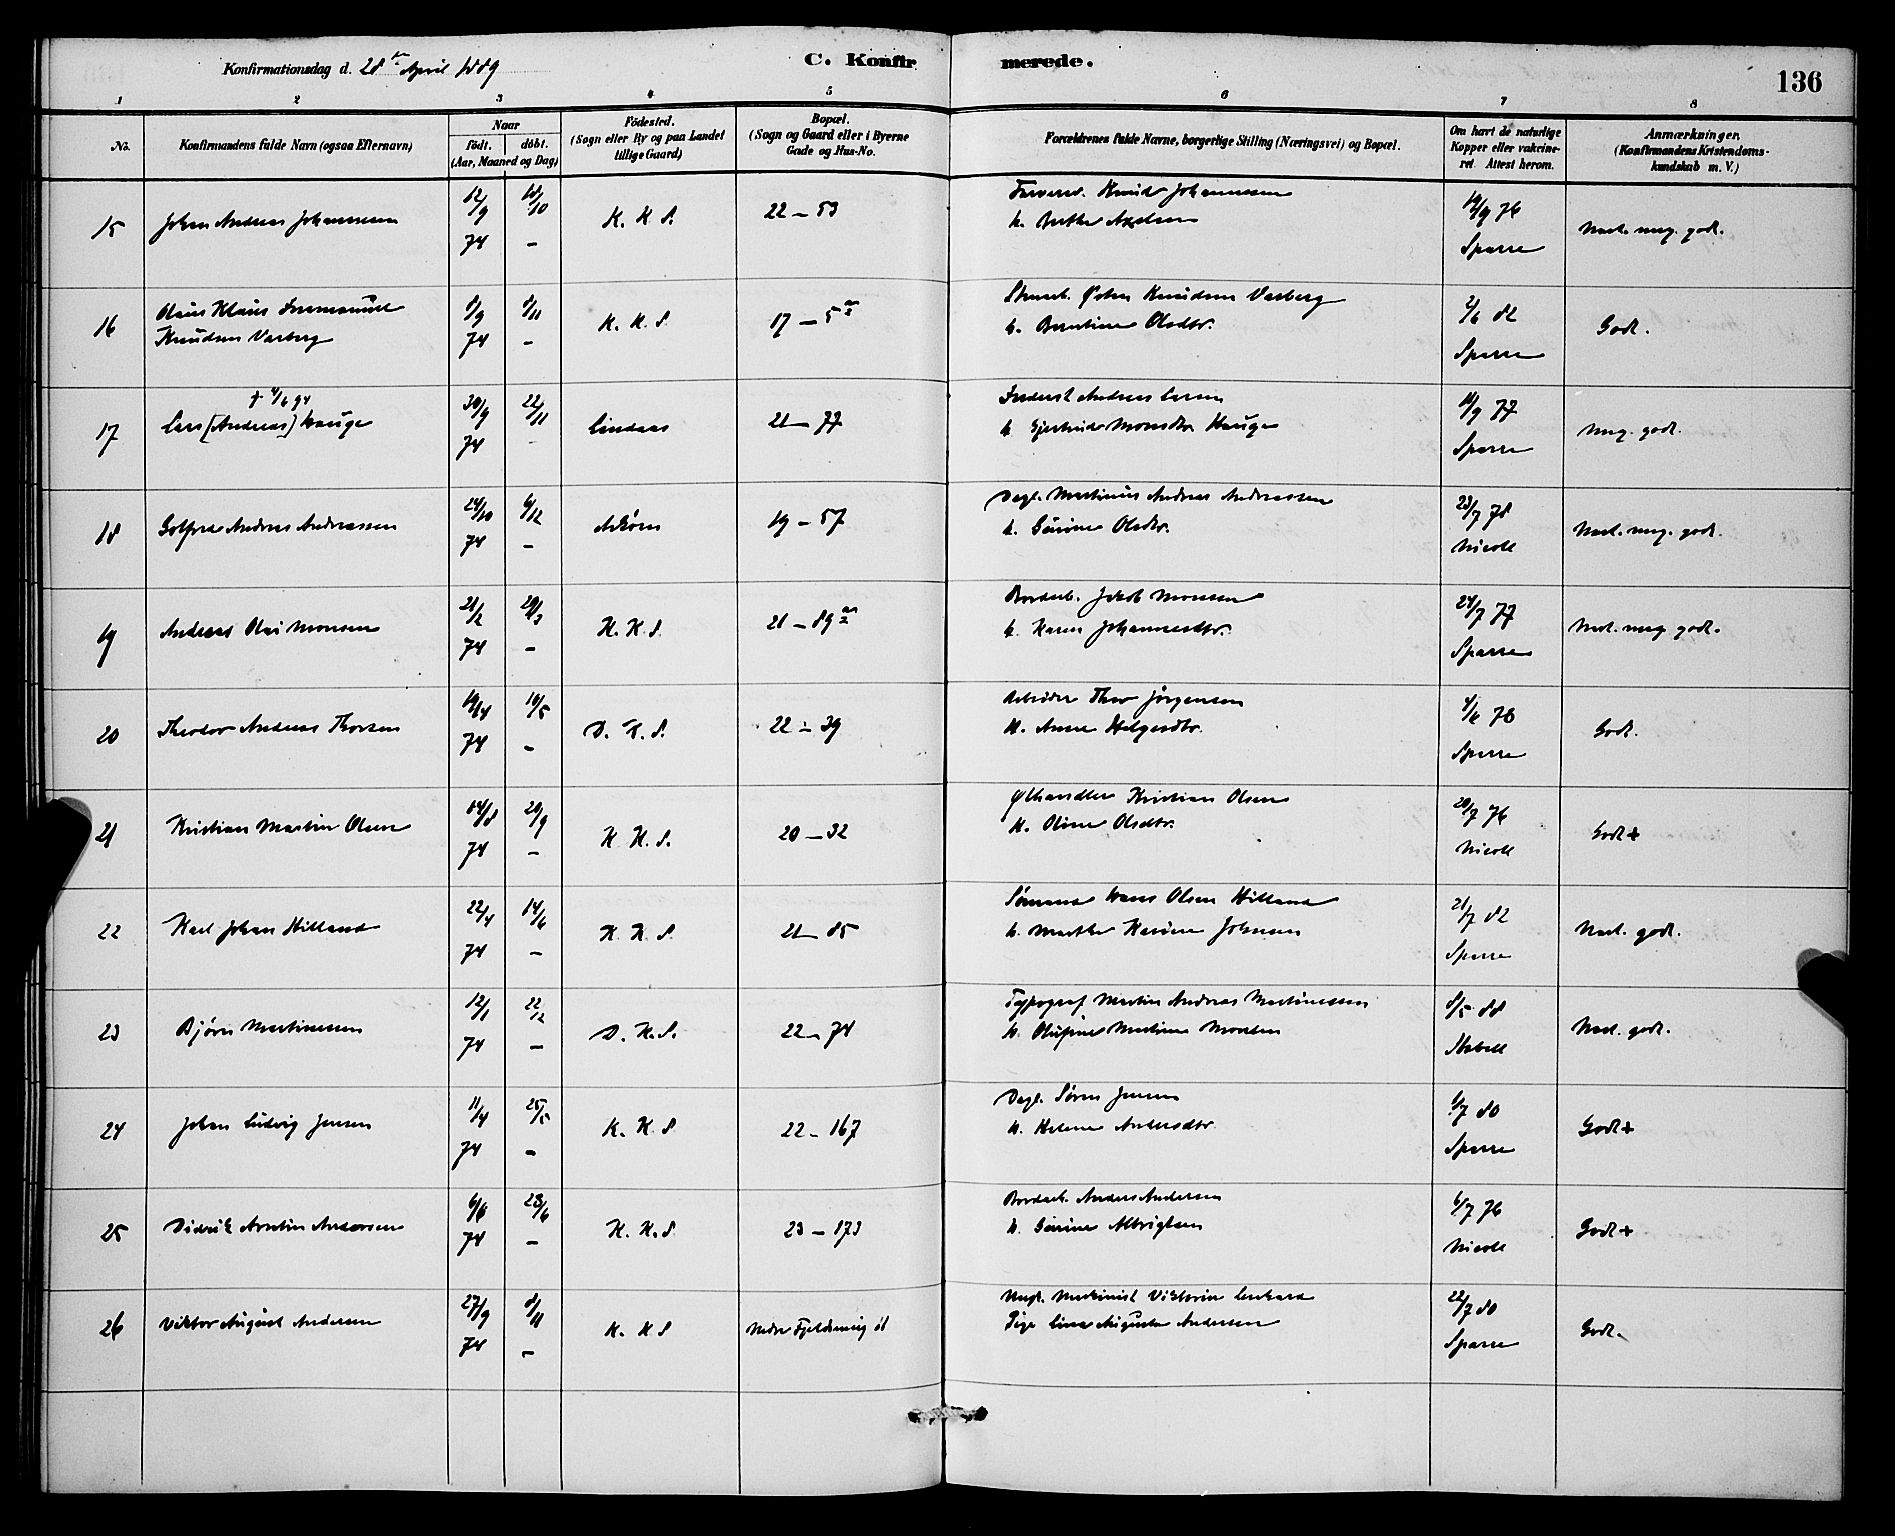 Konfirmationsdag d. 28de April 1889
C. Konfirmerede.
136
1 2 3 4 5 6 7 8
No.
Konfirmandens fulde Navn (ogsaa Efternavn)
Naar
födt. döbt.
(Aar, Maaned og Dag)
Födested.
(Sogn eller By og paa Landet
tillige Gaard)
Bopæl.
(Sogn og Gaard eller i Byerne
Gade og Hus-No.
Forældrenes fulde Navne, borgerlige Stilling (Næringsvei) og Bopæl.
Om havt de naturlige
Kopper eller vakcine-
ret. Attest herom.
Anmærkninger.
(Konfirmandens Kristendoms-
kundskab m. V.)
15 Johan Andreas Johannessen 12/9 74 18/10 – K. K. S. 22 – 53
Knud Johannessen
h. Berthe Axelsen
19/9 76 Sparre
Meg. godt.
16 Olaus Klaus
Knudsen Varberg 8/9 74 8/11 – K. K. S. 17 – 5a
Knudsen Varberg
h. Berntine Olsdtr.
2/6 82 Sparre
Godt.
17 † 4/6 94
Lars [Andreas] Hauge 30/9 74 22/11 Lindaas 21 – 77
Andreas Larsen
h. Gjertrud Monsdtr. Hauge
18/9 77 Sparre
Meg. godt.
18 Andreas Andreassen 24/10 74 6/12 – Askøen 19 – 57
Dagl. Martinus Andreas Andreassen
h. Gurine Olsdtr.
23/7 78 Nicoll
meg. godt.
19 Andreas Olai Monsen 21/2 74 29/3 – K. K. S. 21 – 89a
Bordarb. Jakob Monsen
h. Karen Johannesdtr.
24/7 77 Sparre
meg. godt.
20 Theodor Andreas Thorsen 19/4 74 10/5 – D. K. S. 22 – 39
Arbeider Thor Jörgensen
H. Anne Helgesdtr.
4/6 78 Sparre
Godt.
21 Kristian Martin Olsen 14/8 74 20/9 – K. K. S. 20 – 32
Ølhandler Kristian Olsen
H. Oline Olsdtr.
20/7 76 Nicoll
Godt +
22 Karl Johan Hilland 22/4 74 14/6 – K. K. S. 21 – 85
Sömand Hans Olsen Hilland
h. Marthe Karine Johnsen
21/7 82 Sparre
godt.
23 Bjørn Martinussen 12/1 74 22/2 – D. K. S. 22 – 74
Typograf Martin Andreas Martinussen
h. Olufine Martine
8/5 88
godt.
24 Johan Ludvig Jensen 11/4 74 25/5 – K. K. S. 22 – 167
Dagl. Sören Jensen
h. Helene Andersdtr.
6/7 80 Sparre
Godt +
25 Didrik Andersen 6/6 74 23/6 – K. K. S. 23 – 173
Bordarb. Anders Andersen
h. Gurine Albrigtsen
6/7 76 Nicoll
Godt +
26 Viktor August Andersen 27/9 74 8/11 – K. K. S.
Ungk. Maskinist
Pige Lina Augusta Andersen
22/7 80 Sparre
Godt.